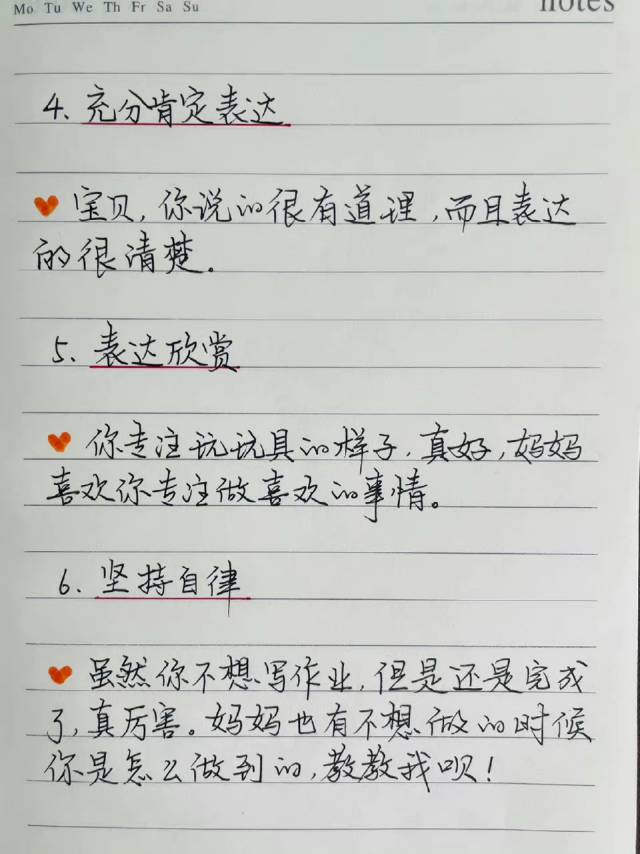 Mo Tu We Th Fr Sa Su
notes
4、充分肯定表达
宝贝，你说的很有道理，而且表达
的很清楚。
5、表达欣赏
你专注玩玩具的样子，真好，妈妈
喜欢你专注做喜欢的事情。
6、坚持自律
虽然你不想写作业，但是还是完成
了，真厉害。妈妈也有不想做的时候
你是怎么做到的，教教我呗！